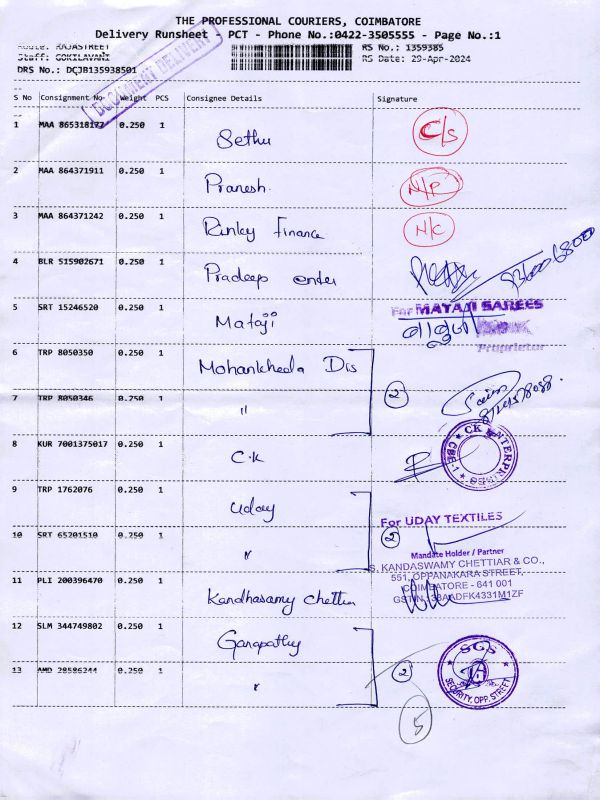 THE PROFESSIONAL COURIERS, COIMBATORE
Delivery Runsheet - PCT - Phone No.:0422-3505555 - Page No.:1
Route: RAJASTREET
RS No.: 1359385
Staff: GOKILAVANI
RS Date: 29-Apr-2024
DRS No.: DCJB135938501
DOCUMENT DELIVERY
S No Consignment No Weight PCS Consignee Details Signature
1 MAA 865318177 0.250 1 Sethu C/S
2 MAA 864371911 0.250 1 Pranesh. N/P
3 MAA 864371242 0.250 1 Rinley Finance N/C
4 BLR 515902671 0.250 1 Pradeep enter
5 SRT 15246520 0.250 1 Mataji For MATAJI SAREES
Proprietor
6 TRP 8050350 0.250 1 Mohankheda Dis
7 TRP 8050346 0.250 1 " 2
8 KUR 7001375017 0.250 1 C.K CK ENTERPRISES CBE-1
9 TRP 1762076 0.250 1 Uday
For UDAY TEXTILES
10 SRT 65201510 0.250 1 " 2
Mandate Holder / Partner
S. KANDASWAMY CHETTIAR & CO.,
551, OPPANAKARA STREET,
11 PLI 200396470 0.250 1 Kandhasamy Chettiar COIMBATORE - 641 001
GSTIN: 33AADFK4331M1ZF
12 SLM 344749802 0.250 1 Ganapathy
13 AMD 28586244 0.250 1 " 2 SGS SECURITY, OPP. STREET
5